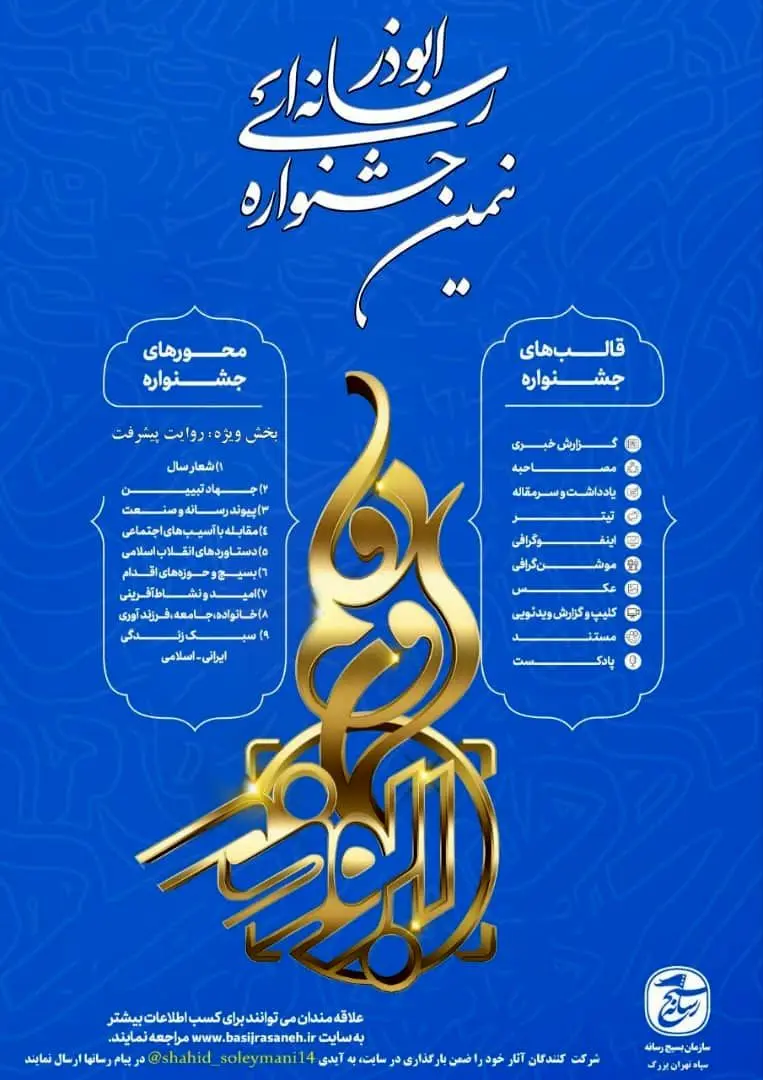 ابوذر
رسانه‌ای
جشنواره
نهمین
قالب‌های
جشنواره
گزارش خبری
مصاحبه
یادداشت و سرمقاله
تیتر
اینفوگرافی
موشن‌گرافی
عکس
کلیپ و گزارش ویدئویی
مستند
پادکست
محورهای
جشنواره
بخش ویژه: روایت پیشرفت
۱) شعار سال
۲) جهاد تبیین
۳) پیوند رسانه و صنعت
۴) مقابله با آسیب‌های اجتماعی
۵) دستاوردهای انقلاب اسلامی
۶) بسیج و حوزه‌های اقدام
۷) امید و نشاط‌آفرینی
۸) خانواده، جامعه، فرزندآوری
۹) سبک زندگی
ایرانی - اسلامی
ابوذر
علاقه مندان می توانند برای کسب اطلاعات بیشتر
به سایت www.basijrasaneh.ir مراجعه نمایند.
شرکت کنندگان آثار خود را ضمن بارگذاری در سایت، به آیدی @shahid_soleymani14 در پیام رسانها ارسال نمایند
بسیج
رسانه
سازمان بسیج رسانه
سپاه تهران بزرگ